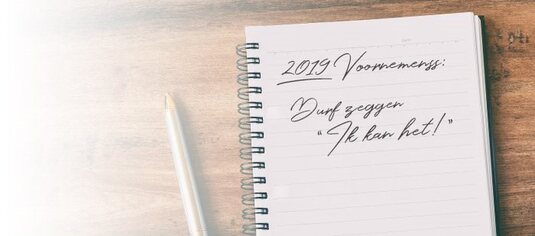 2019 Voornemenss:
Durf zeggen
"Ik kan het!"